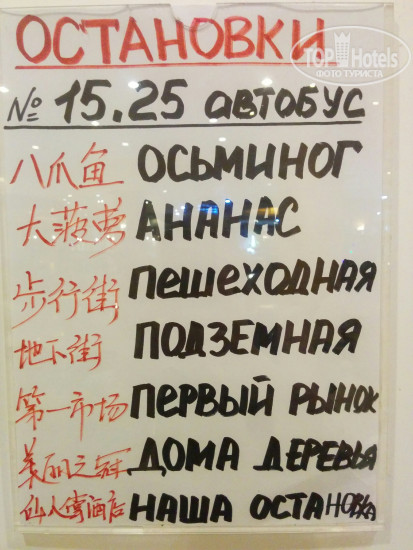 ОСТАНОВКИ
TOPHotels
ФОТО ТУРИСТА
№ 15.25 автобус
八爪鱼 ОСЬМИНОГ
大菠萝 АНАНАС
步行街 ПЕШЕХОДНАЯ
地下街 ПОДЗЕМНАЯ
第一市场 ПЕРВЫЙ РЫНОК
美丽之冠 ДОМА ДЕРЕВЬЯ
仙人掌酒店 НАША ОСТАНОВКА